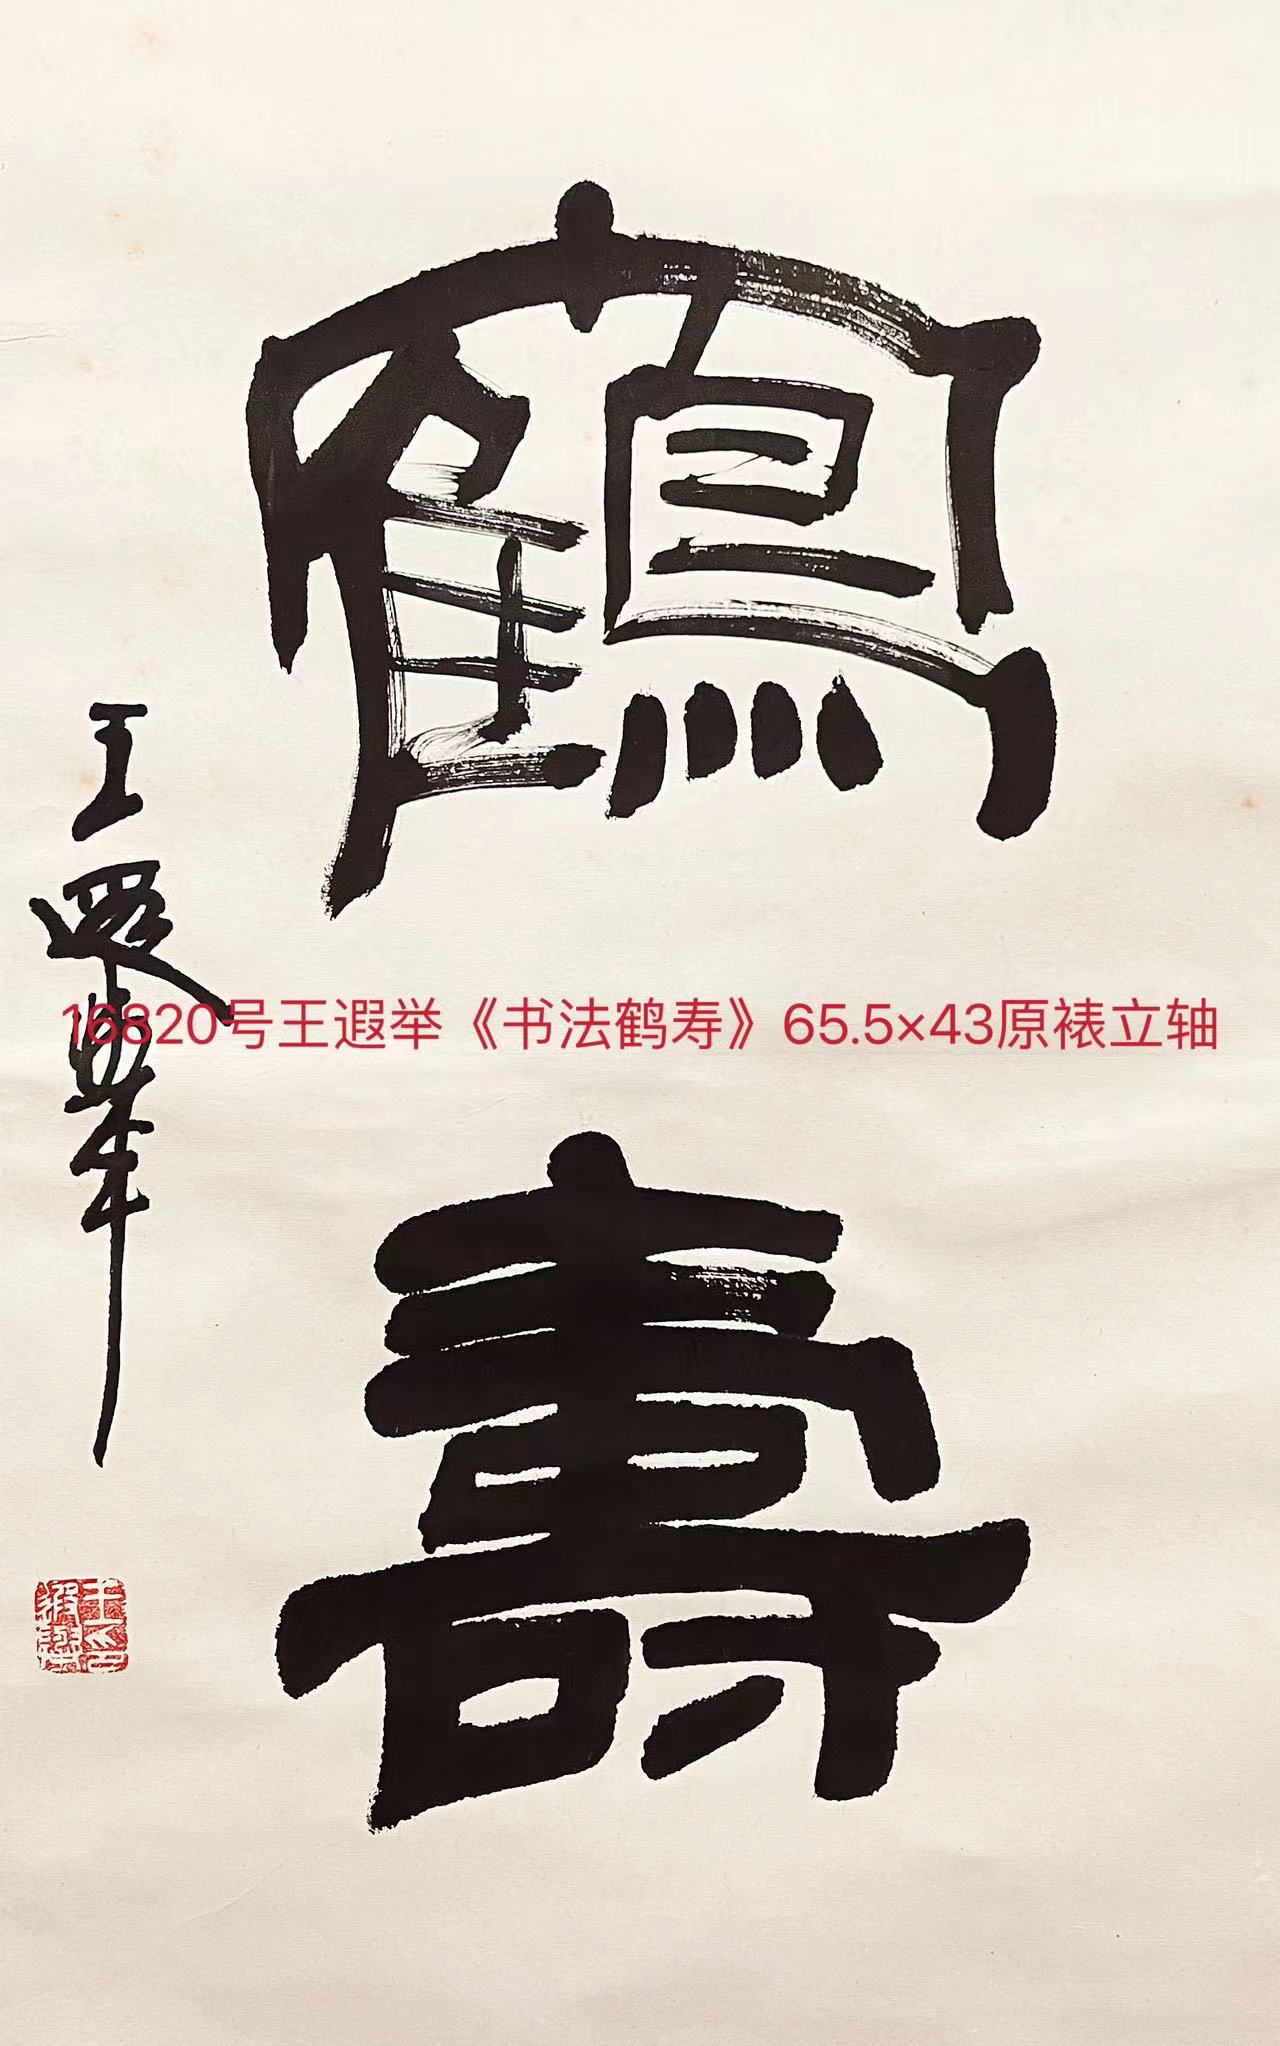 鶴
壽
王遐舉
16820号王遐举《书法鹤寿》65.5×43原裱立轴
王遐舉印